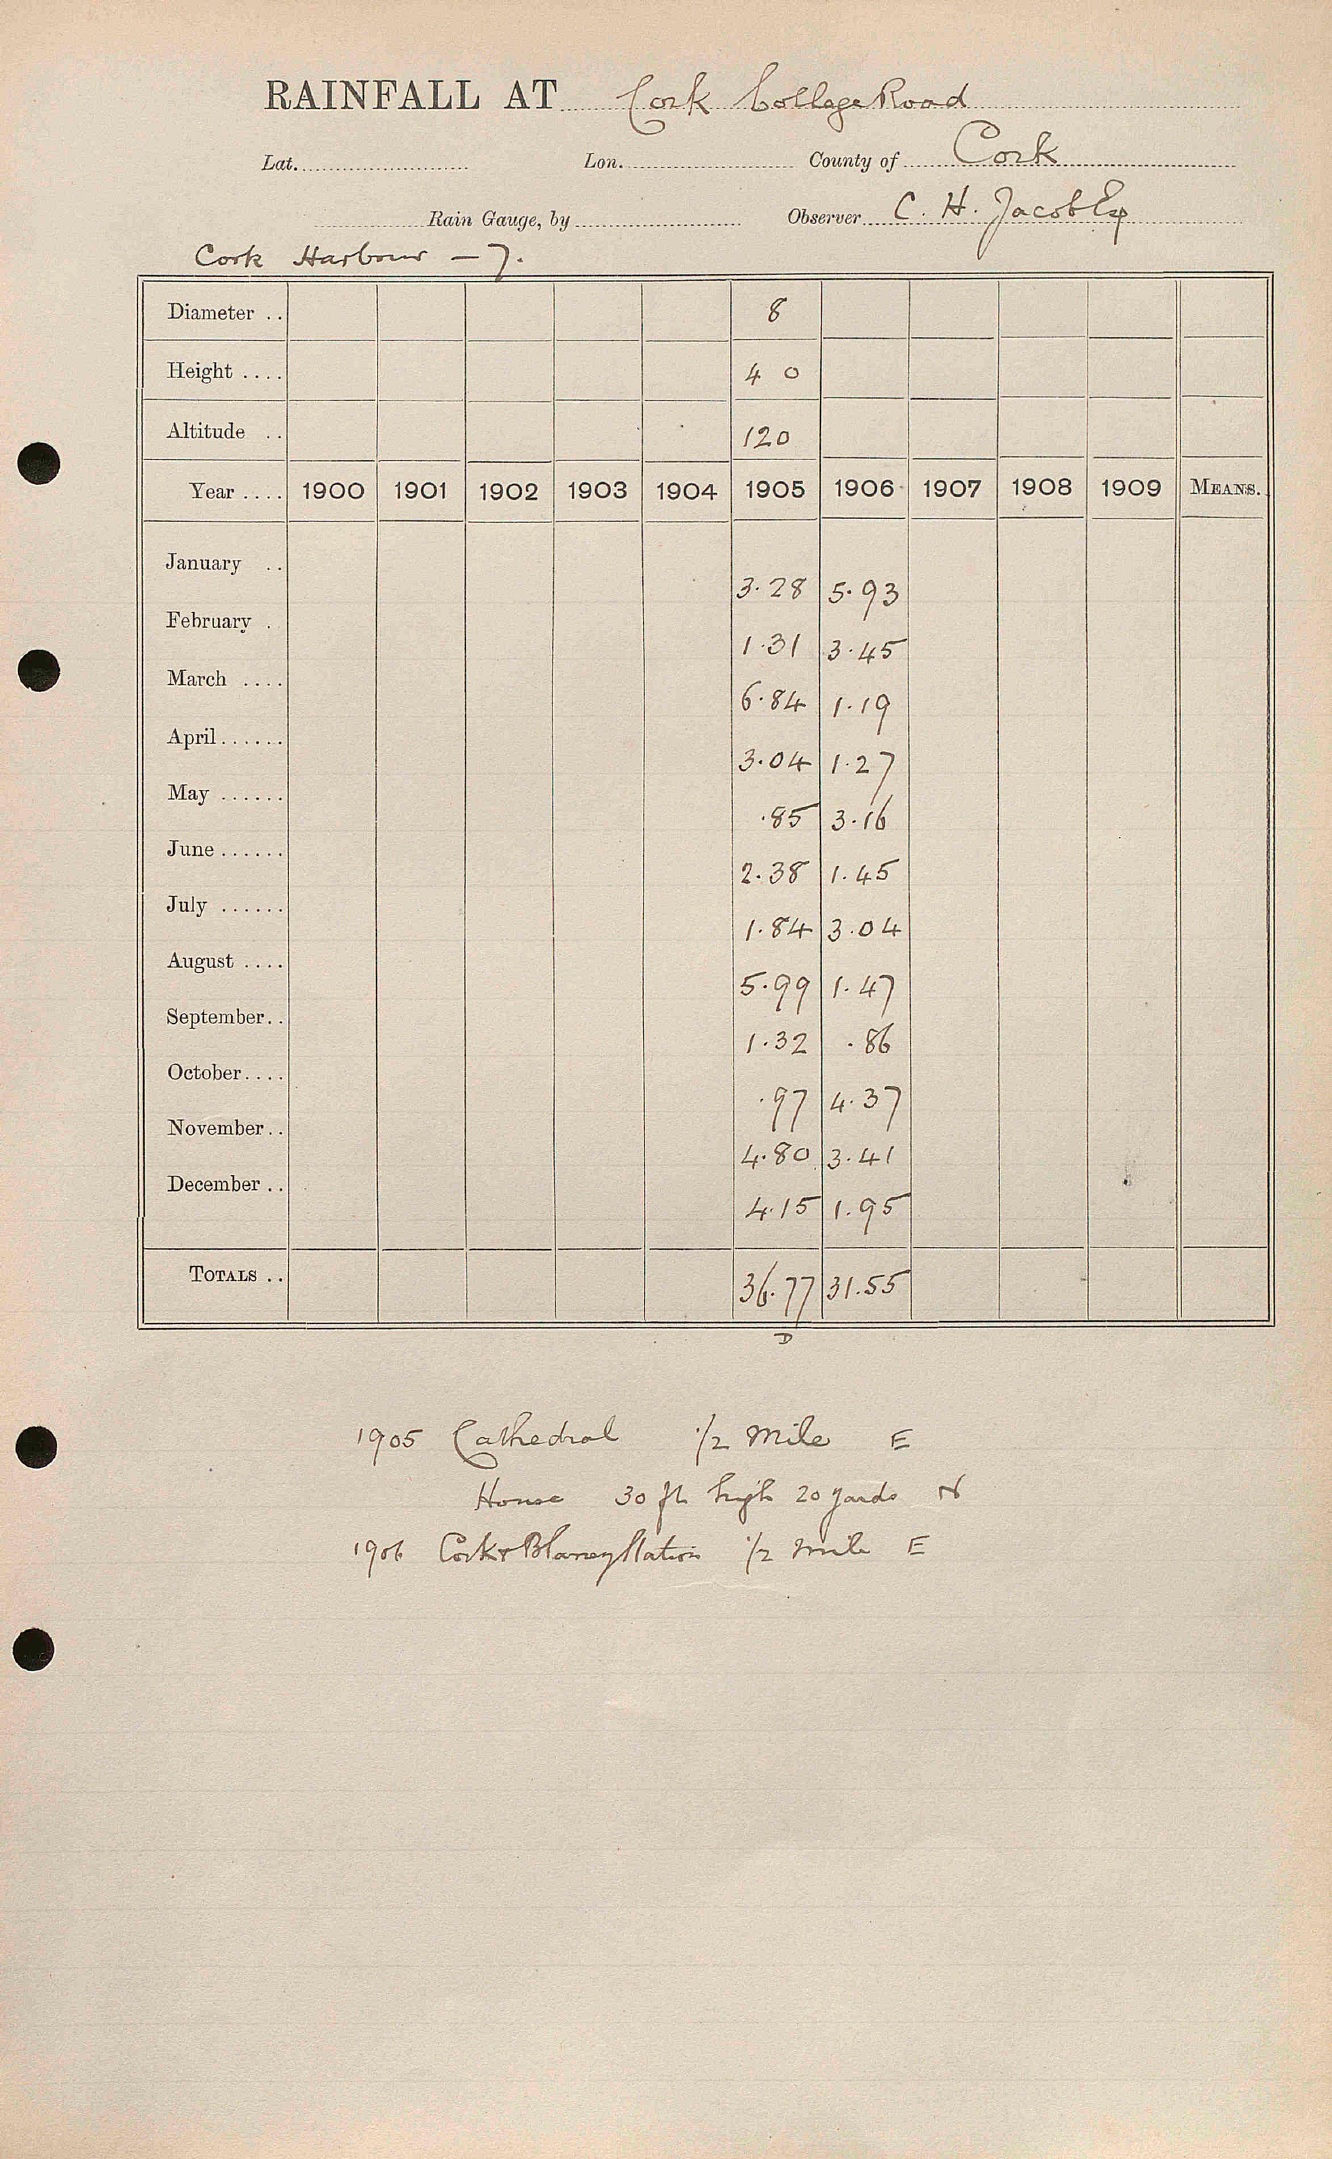 RAINFALL AT Cork College Road
Lat. Lon. County of Cork
Rain Gauge, by Observer C. H. Jacob Esq
Cork Harbour — 7.
Diameter .. 8
Height .... 4 0
Altitude .. 120
Year .... 1900 1901 1902 1903 1904 1905 1906 1907 1908 1909 MEANS.
January .. 3.28 5.93
February . 1.31 3.45
March .... 6.84 1.19
April...... 3.04 1.27
May ...... .85 3.16
June...... 2.38 1.45
July ...... 1.84 3.04
August .... 5.99 1.47
September.. 1.32 .86
October.... .97 4.37
November.. 4.80 3.41
December.. 4.15 1.95
TOTALS .. 36.77 31.55
D
1905 Cathedral 1/2 Mile E
House 30 ft high 20 yards N
1906 Cork & Blarney Station 1/2 mile E